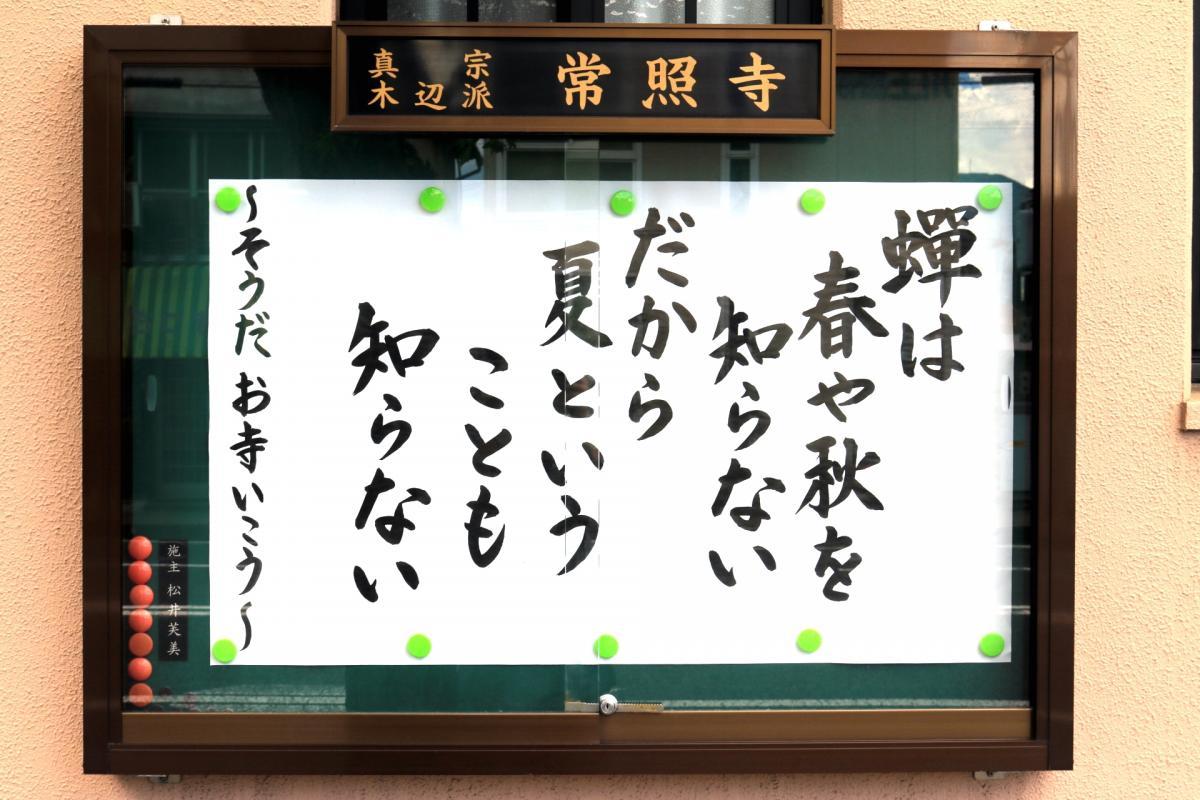 真宗
木辺派
常照寺
蟬は
春や秋を
知らない
だから
夏という
ことも
知らない
〜そうだ お寺いこう〜
施主 松井芙美